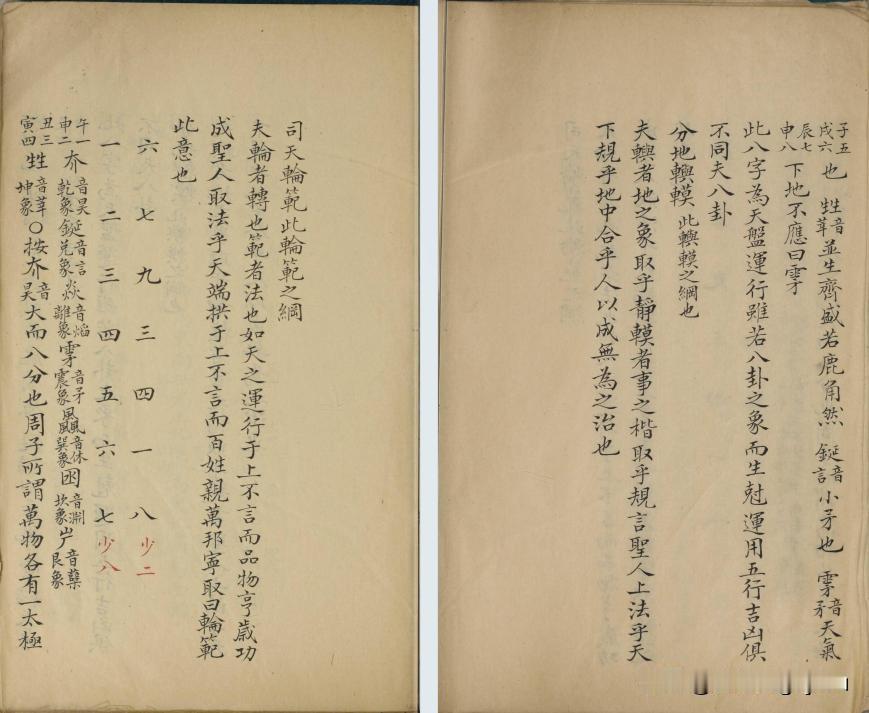 司天輪範此輪範之綱
夫輪者轉也範者法也如天之運行于上不言而品物亨歲功
成聖人取法乎天端拱于上不言而百姓親萬邦寧取曰輪範
此意也
六 七 九 三 四 一 八 少二
一 二 三 四 五 六 七 少八
午一申二 夰音昊乾象鋋音言兌象焱音焰離象雺音矛震象飍音休巽象囦音淵坎象屵音櫱艮象
丑三寅四 甡音莘坤象○按夰音昊大而八分也周子所謂萬物各有一太極
子五戌六 也 甡音莘並生齊盛若鹿角然 鋋音言小矛也 雺音矛天氣
辰七申八 下地不應曰雺
此八字為天盤運行雖若八卦之象而生尅運用五行吉凶俱
不同夫八卦
分地輿模 此輿模之綱也
夫輿者地之象取乎靜模者事之楷取乎規言聖人上法乎天
下規乎地中合乎人以成無為之治也